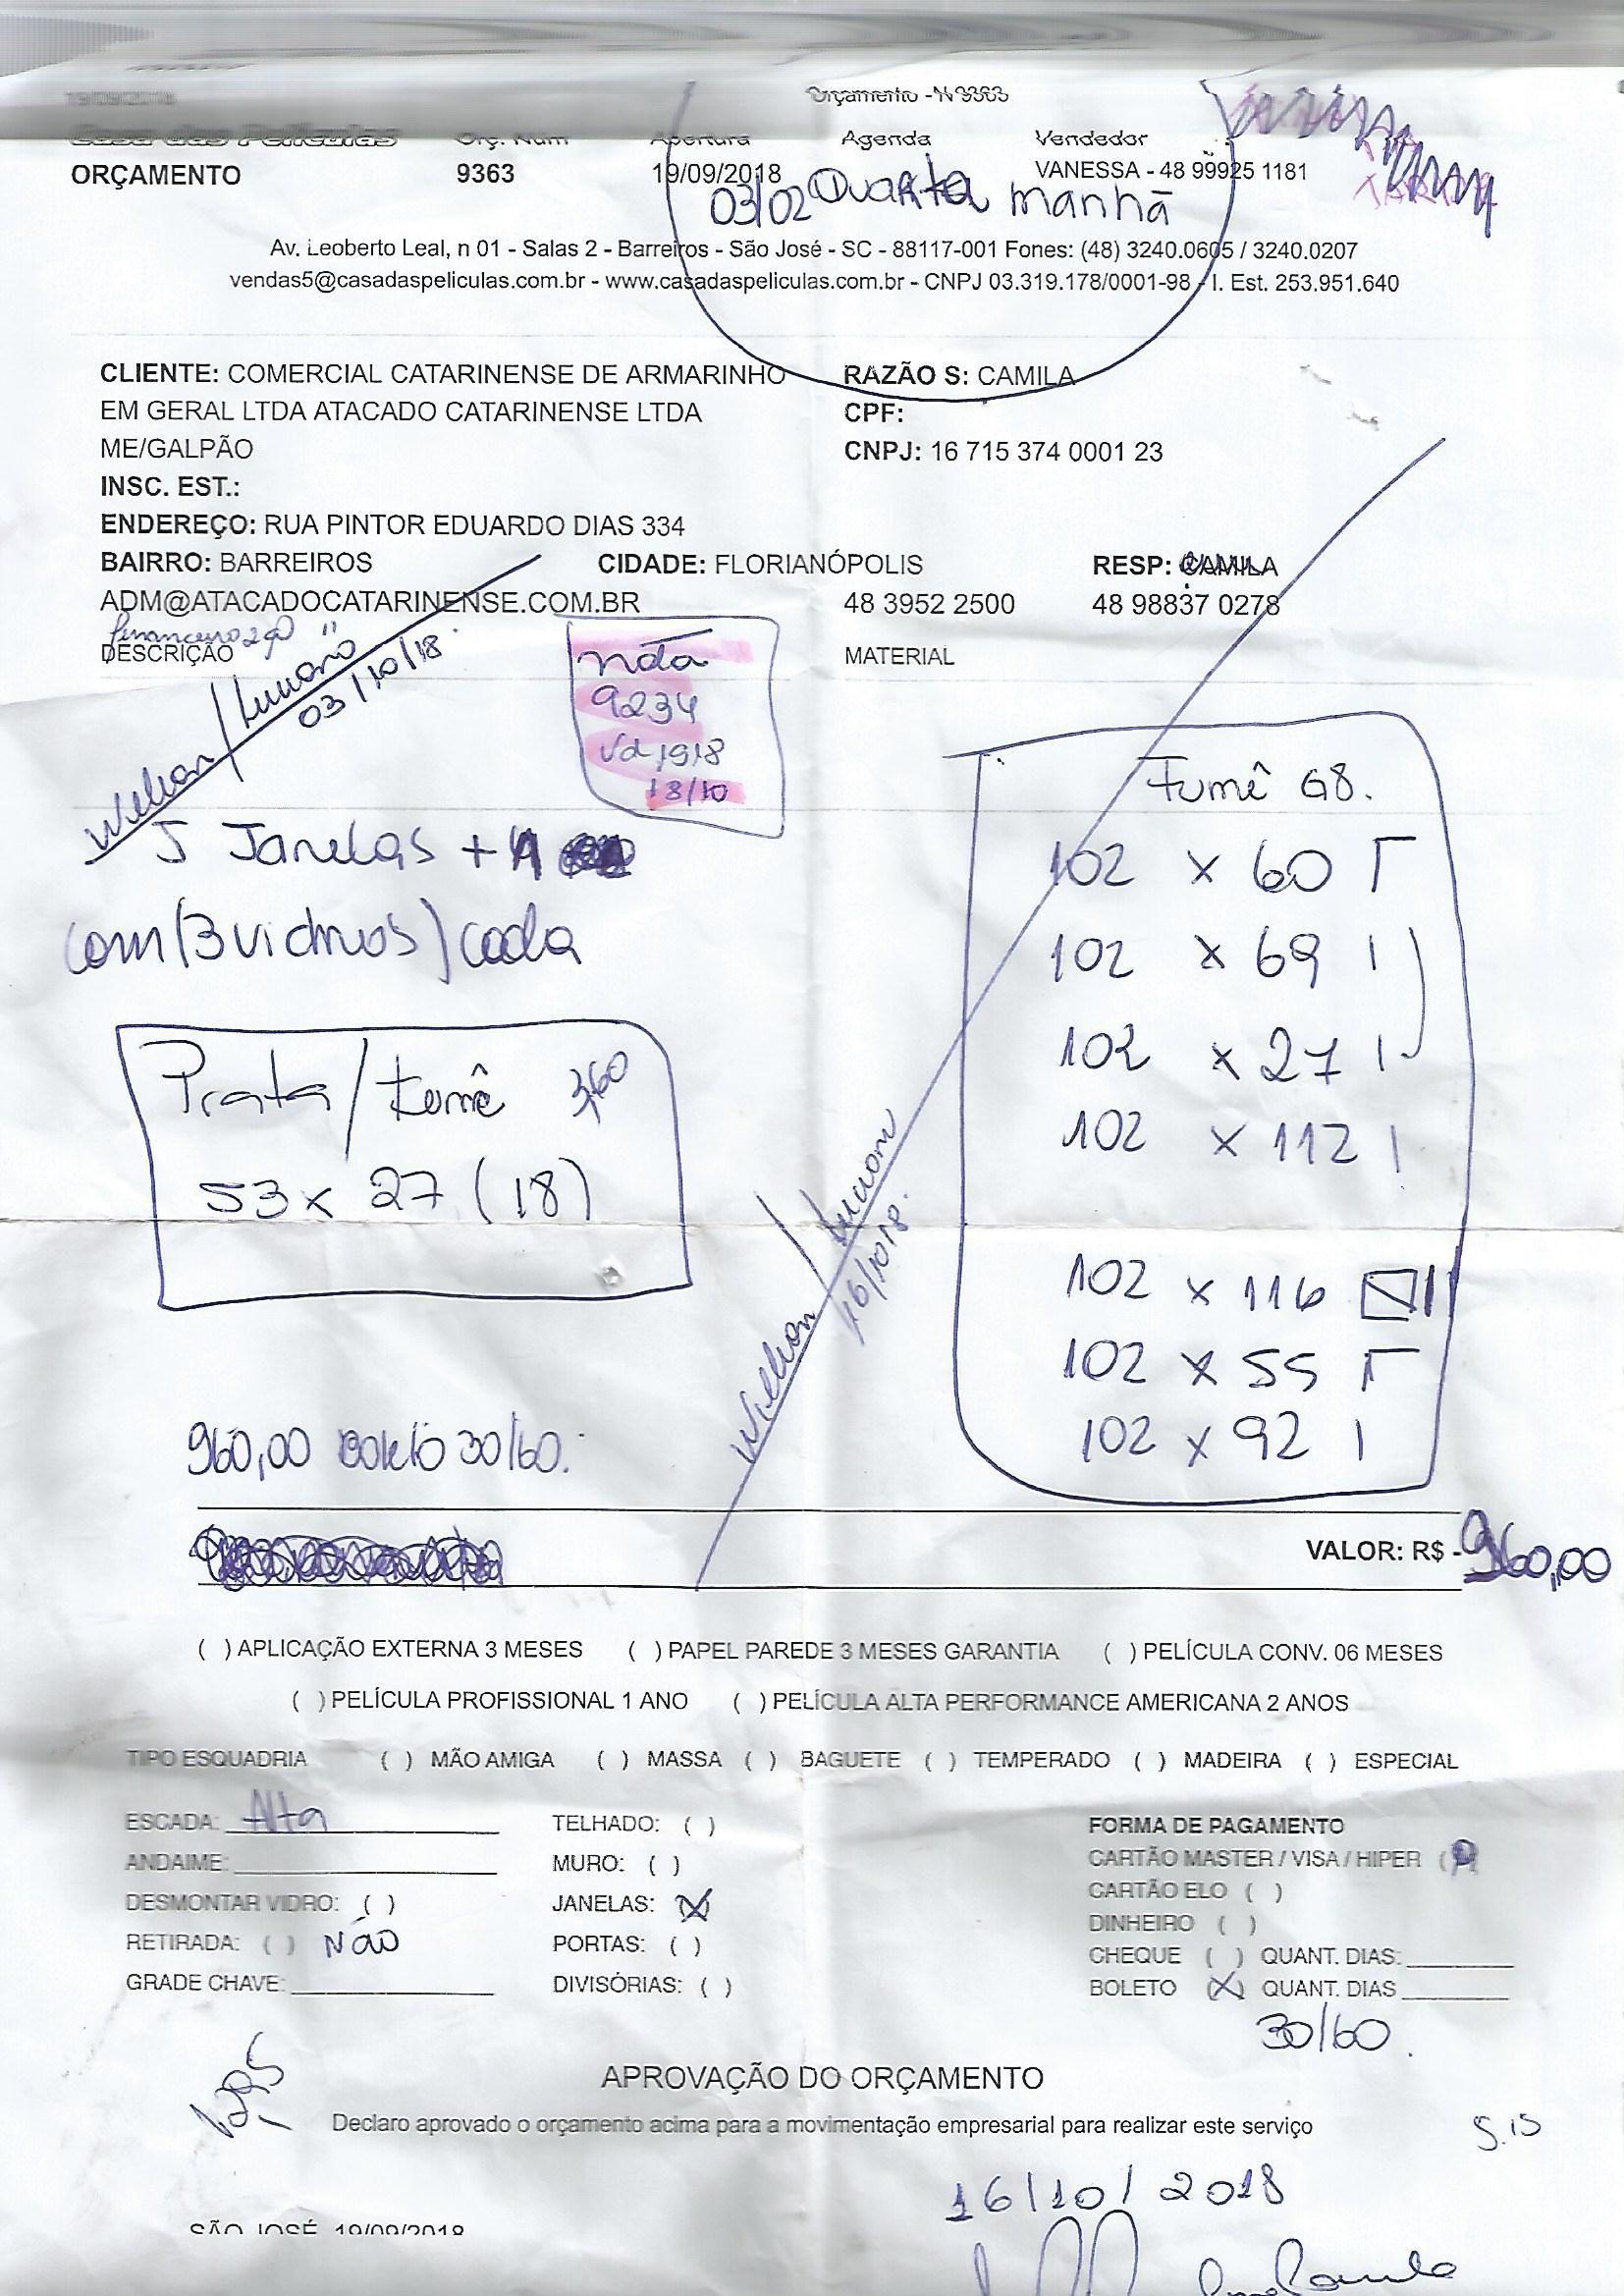 19/09/2018
Orçamento - N 9363
Casa das Películas Orç. Num Abertura Agenda Vendedor
ORÇAMENTO 9363 19/09/2018 VANESSA - 48 99925 1181
03/02 Quarta manhã
Av. Leoberto Leal, n 01 - Salas 2 - Barreiros - São José - SC - 88117-001 Fones: (48) 3240.0605 / 3240.0207
vendas5@casadaspeliculas.com.br - www.casadaspeliculas.com.br - CNPJ 03.319.178/0001-98 - I. Est. 253.951.640
CLIENTE: COMERCIAL CATARINENSE DE ARMARINHO RAZÃO S: CAMILA
EM GERAL LTDA ATACADO CATARINENSE LTDA CPF:
ME/GALPÃO CNPJ: 16 715 374 0001 23
INSC. EST.:
ENDEREÇO: RUA PINTOR EDUARDO DIAS 334
BAIRRO: BARREIROS CIDADE: FLORIANÓPOLIS RESP: CAMILA
ADM@ATACADOCATARINENSE.COM.BR 48 3952 2500 48 98837 0278
DESCRIÇÃO MATERIAL
03/10/18
nota
9234
Vd 1918
18/10
5 Janelas +
com (3 vidros) cada
Prata / fumê 3,60
53 x 27 (18)
Fumê G8.
102 x 60 Γ
102 x 69 I
102 x 27 I
102 x 112 I
102 x 116
102 x 55 Γ
102 x 92 I
16/10 18.
960,00 Boleto 30/60.
VALOR: R$ - 960,00
( ) APLICAÇÃO EXTERNA 3 MESES ( ) PAPEL PAREDE 3 MESES GARANTIA ( ) PELÍCULA CONV. 06 MESES
( ) PELÍCULA PROFISSIONAL 1 ANO ( ) PELÍCULA ALTA PERFORMANCE AMERICANA 2 ANOS
TIPO ESQUADRIA ( ) MÃO AMIGA ( ) MASSA ( ) BAGUETE ( ) TEMPERADO ( ) MADEIRA ( ) ESPECIAL
ESCADA: Alta TELHADO: ( ) FORMA DE PAGAMENTO
ANDAIME: MURO: ( ) CARTÃO MASTER / VISA / HIPER ( )
DESMONTAR VIDRO: ( ) JANELAS: (X) CARTÃO ELO ( )
DINHEIRO ( )
RETIRADA: ( ) NÃO PORTAS: ( ) CHEQUE ( ) QUANT. DIAS:
GRADE CHAVE: DIVISÓRIAS: ( ) BOLETO (X) QUANT. DIAS
30/60.
APROVAÇÃO DO ORÇAMENTO
Declaro aprovado o orçamento acima para a movimentação empresarial para realizar este serviço
5.15
16/10/2018
SÃO JOSÉ, 19/09/2018